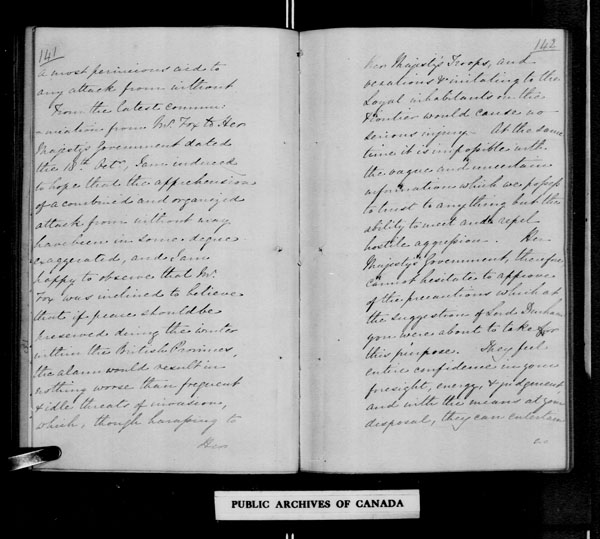 141
a most pernicious aid to
any attack from without
From the latest commu:
:nication from Mr. Fox to Her
Majesty's Government dated
the 18th Octr, I am induced
to hope that the apprehensions
of a combined and organized
attack from without may
have been in some degree
exaggerated, and I am
happy to observe that Mr.
Fox was inclined to believe
that if peace should be
preserved during the winter
within the British Provinces,
the alarm would result in
nothing worse than frequent
& idle threats of invasion,
which, though harassing to
Her
142
her Majesty's Troops, and
vexatious & irritating to the
Loyal inhabitants on the
Frontier would cause no
serious injury. At the same
time it is impossible with
the vague and uncertain
informations which we possess
to trust to anything but the
ability to meet and repel
hostile aggression. Her
Majesty's Government, therefore
cannot hesitate to approve
of the precautions which at
the suggestion of Lord Durham
you were about to take for
this purpose. They feel
entire confidence in your
foresight, energy, & judgement
and with the means at your
disposal, they can entertain
no
PUBLIC ARCHIVES OF CANADA